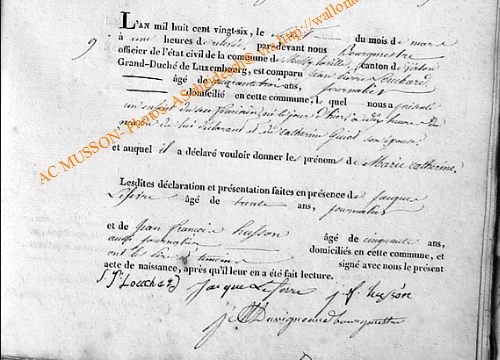 9
L'AN mil huit cent vingt-six, le huit du mois de mars
à une heures de relevée par-devant nous Bourgmestre
officier de l'état civil de la commune de canton de
Grand-Duché de Luxembourg, est comparu Jean Pierre Louchard,
âgé de quarante trois ans, journalier
domicilié en cette commune, Lequel nous a présenté
un enfant du sexe féminin, né le jour d'hier à dix heures du
matin de lui déclarant et de catherine son épouse
et auquel il a déclaré vouloir donner les prénoms de Marie catherine.
Lesdites déclaration et présentation faites en présence de jacque
Lefevre âgé de trente ans, journalier
et de jean françois husson âgé de cinquante ans,
aussi journalier domiciliés en cette commune, et
ont le père et témoins signé avec nous le présent
acte de naissance, après qu'il leur en a été fait lecture.
jacque j. f. husson
Duvignau bourgmestre
AC MUSSON-Photos- http://wallonie